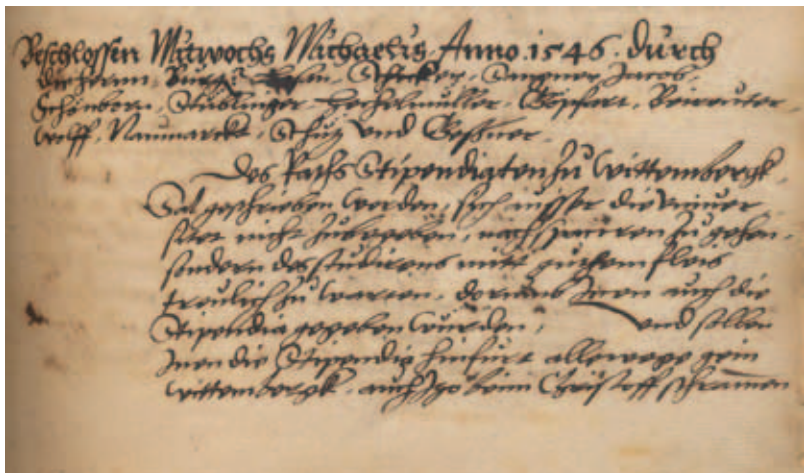 Beschlossen Mitwochs Michaelis Anno 1546 durch
die herrn Burg: Stecker, Jacob,
Schönborn, Stublinger Hechelmüller, Gepfart, Beireuter,
Wolff, Naumarckt, Schütz und Geßner,
Des Raths Stipendigten zu Wittembergk
Sal geschrieben werden, sich ausser die univer
sitet nicht zubegeben, noch spaciren zu gehen,
sondern des studirens mitt gutem fleis
treulich zu warten, dorumb Inen auch die
Stipendia gegeben wurden, und sollen
Inen die Stipendia hinfurt allewege gein
Wittembergk, auch Itzo beim Christoff schramen